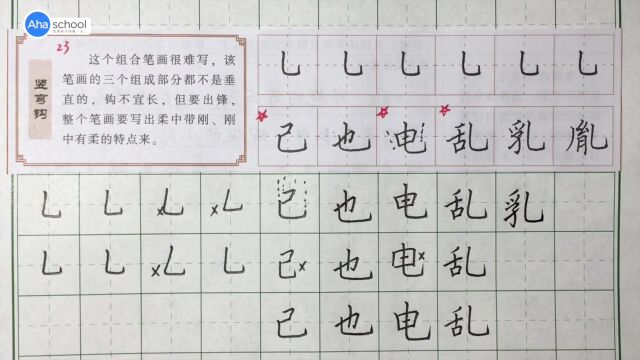 Aha school
23
竖弯钩
这个组合笔画很难写，该
笔画的三个组成部分都不是垂
直的，钩不宜长，但要出锋，
整个笔画要写出柔中带刚、刚
中有柔的特点来。
乚 乚 乚 乚 乚 乚
己 也 电 乱 乳 胤
乚 乚 x乚 x乚 己 也 电 乱 乳
乚 乚 x乚 乚 己x 也 电x 乱
己 也 电 乱